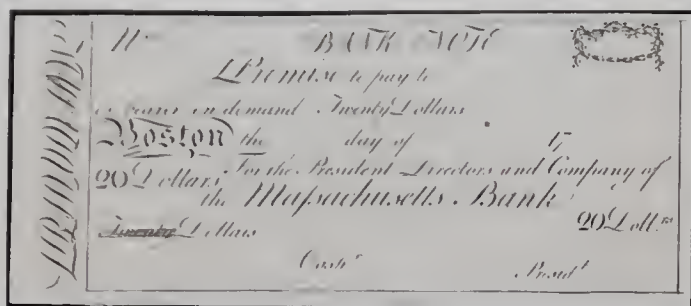 No. BANK NOTE
I Promise to pay to
or bearer on demand Twenty Dollars
Boston the day of 17
20 Dollars For the President Directors and Company of
the Maſsachusetts Bank
20 Doll.rs
Twenty Dollars
Cash.r Presid.t